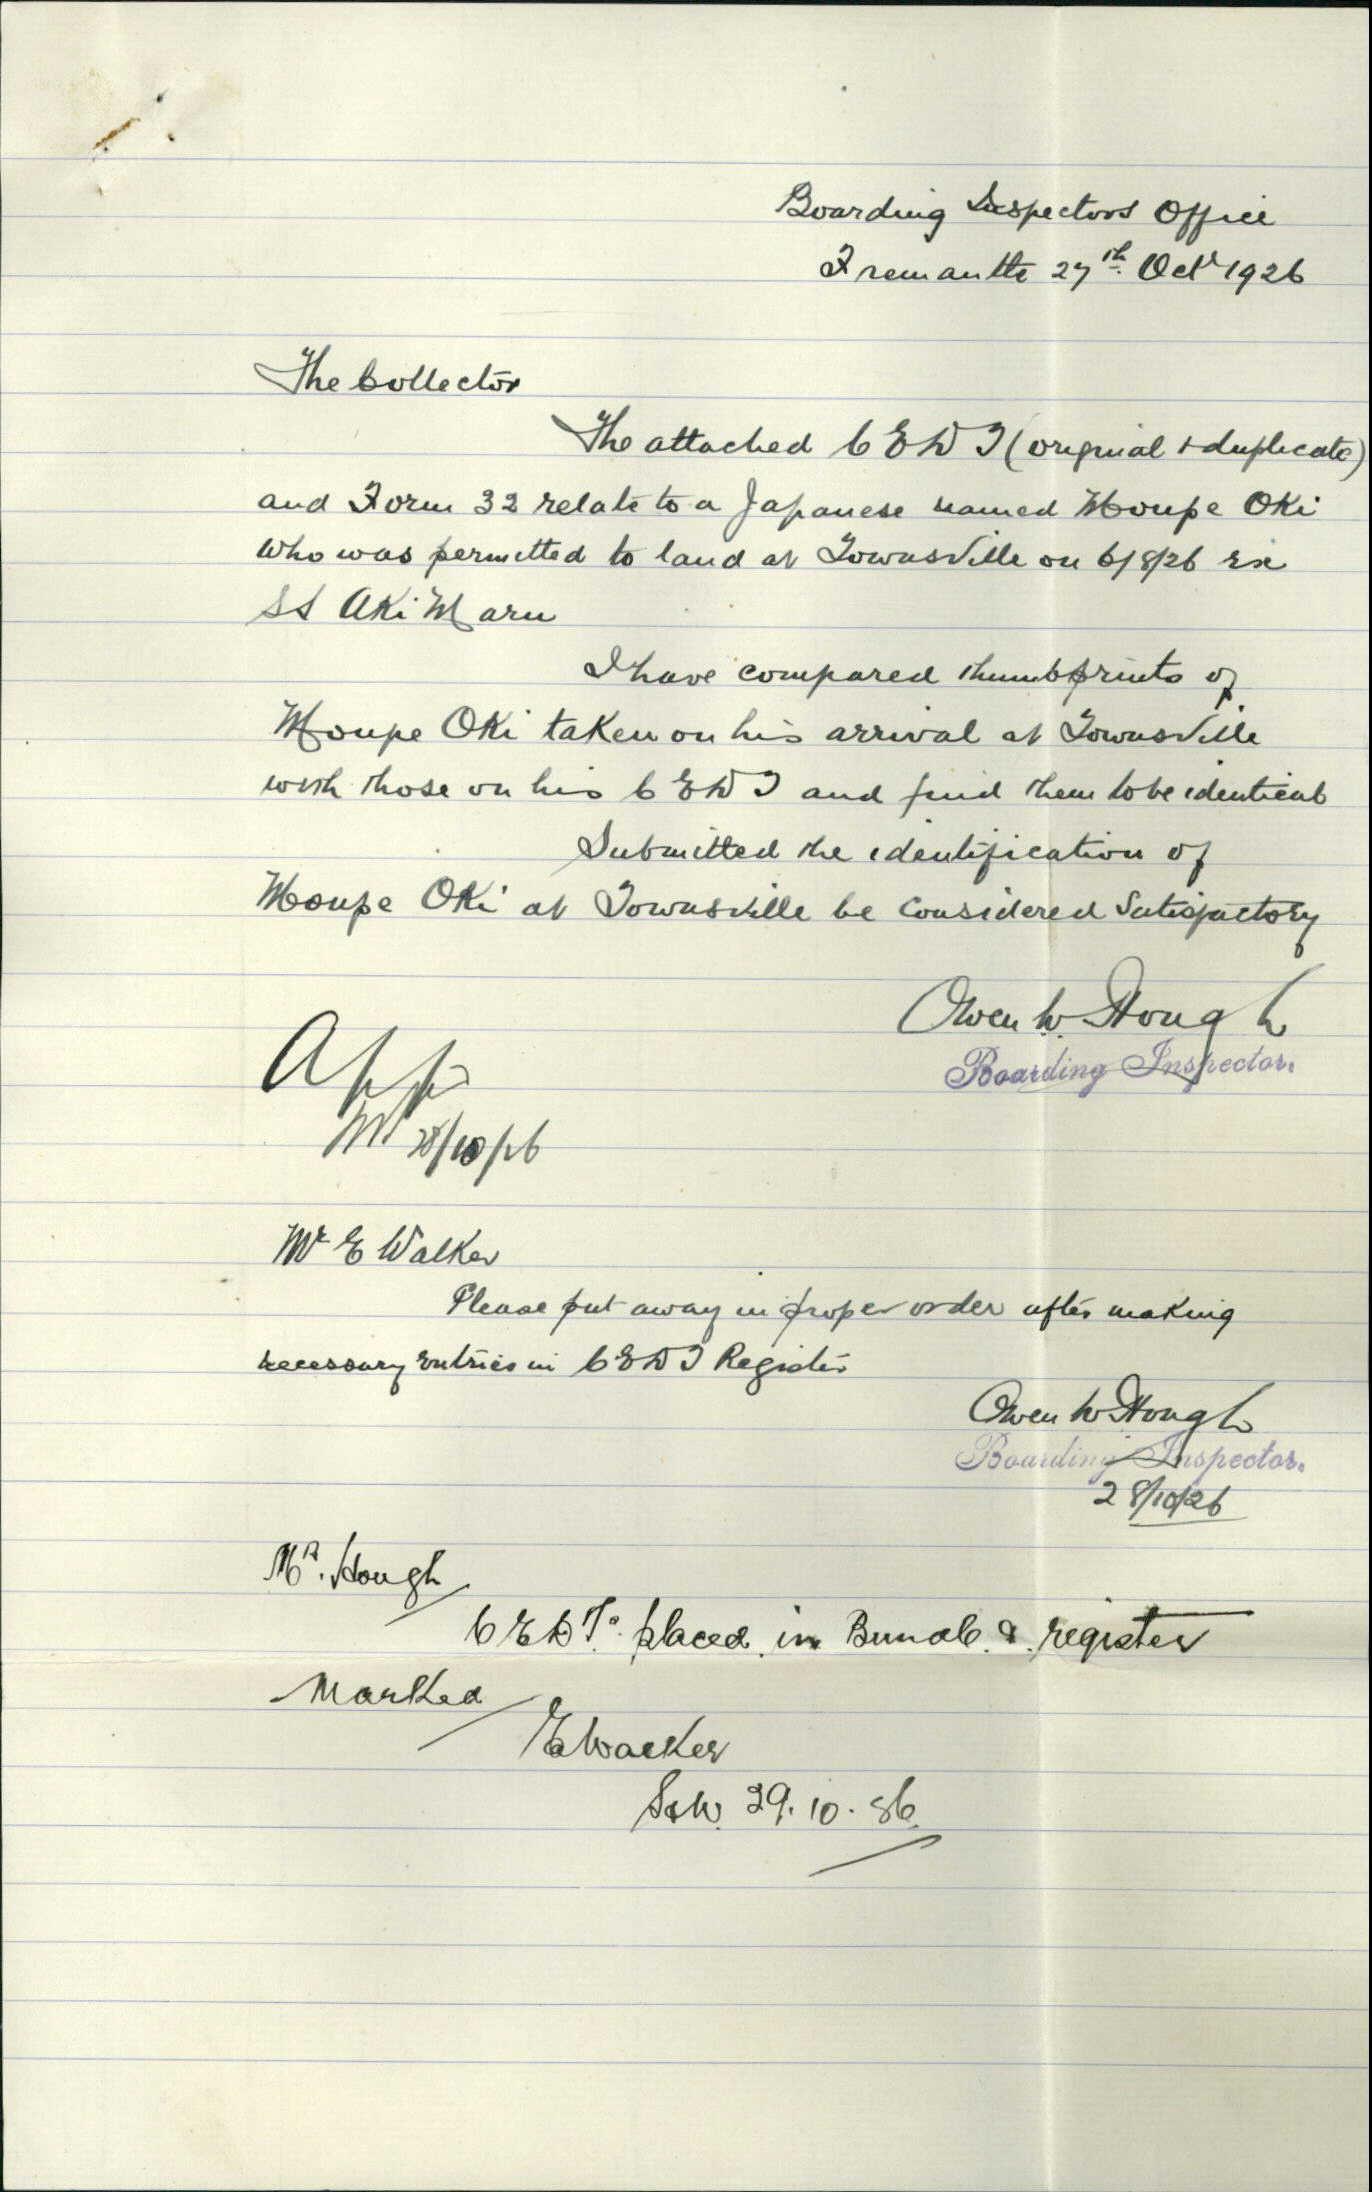 Boarding Inspectors Office
Fremantle 27th Octr 1926
The Collector
The attached C E D T (original & duplicate)
and Form 32 relate to a Japanese named Moupe Oki
who was permitted to land at Townsville on 6/8/26 ex
SS Aki Maru
I have compared thumbprints of
Moupe Oki taken on his arrival at Townsville
with those on his C E D T and find them to be identical
Submitted the identification of
Moupe Oki at Townsville be considered satisfactory
Owen W. Hough
Boarding Inspector.
App
28/10/26
Mr E Walker
Please put away in proper order after making
necessary entries in C E D T Register
Owen W Hough
Boarding Inspector.
28/10/26
Mr. Hough
C E D Ts placed in Bundle & register
Marked
E Walker
29.10.26